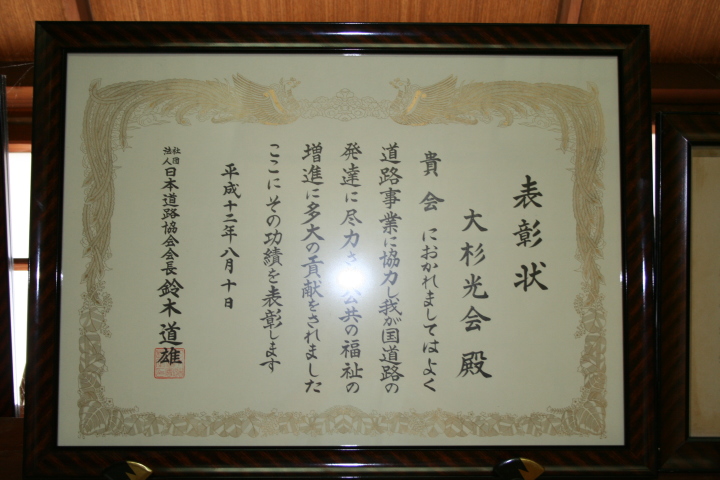 表彰状
大杉光会 殿
貴会におかれましてはよく
道路事業に協力し我が国道路の
発達に尽力さ 公共の福祉の
増進に多大の貢献をされました
ここにその功績を表彰します
平成十二年八月十日
社団法人日本道路協会会長 鈴木道雄